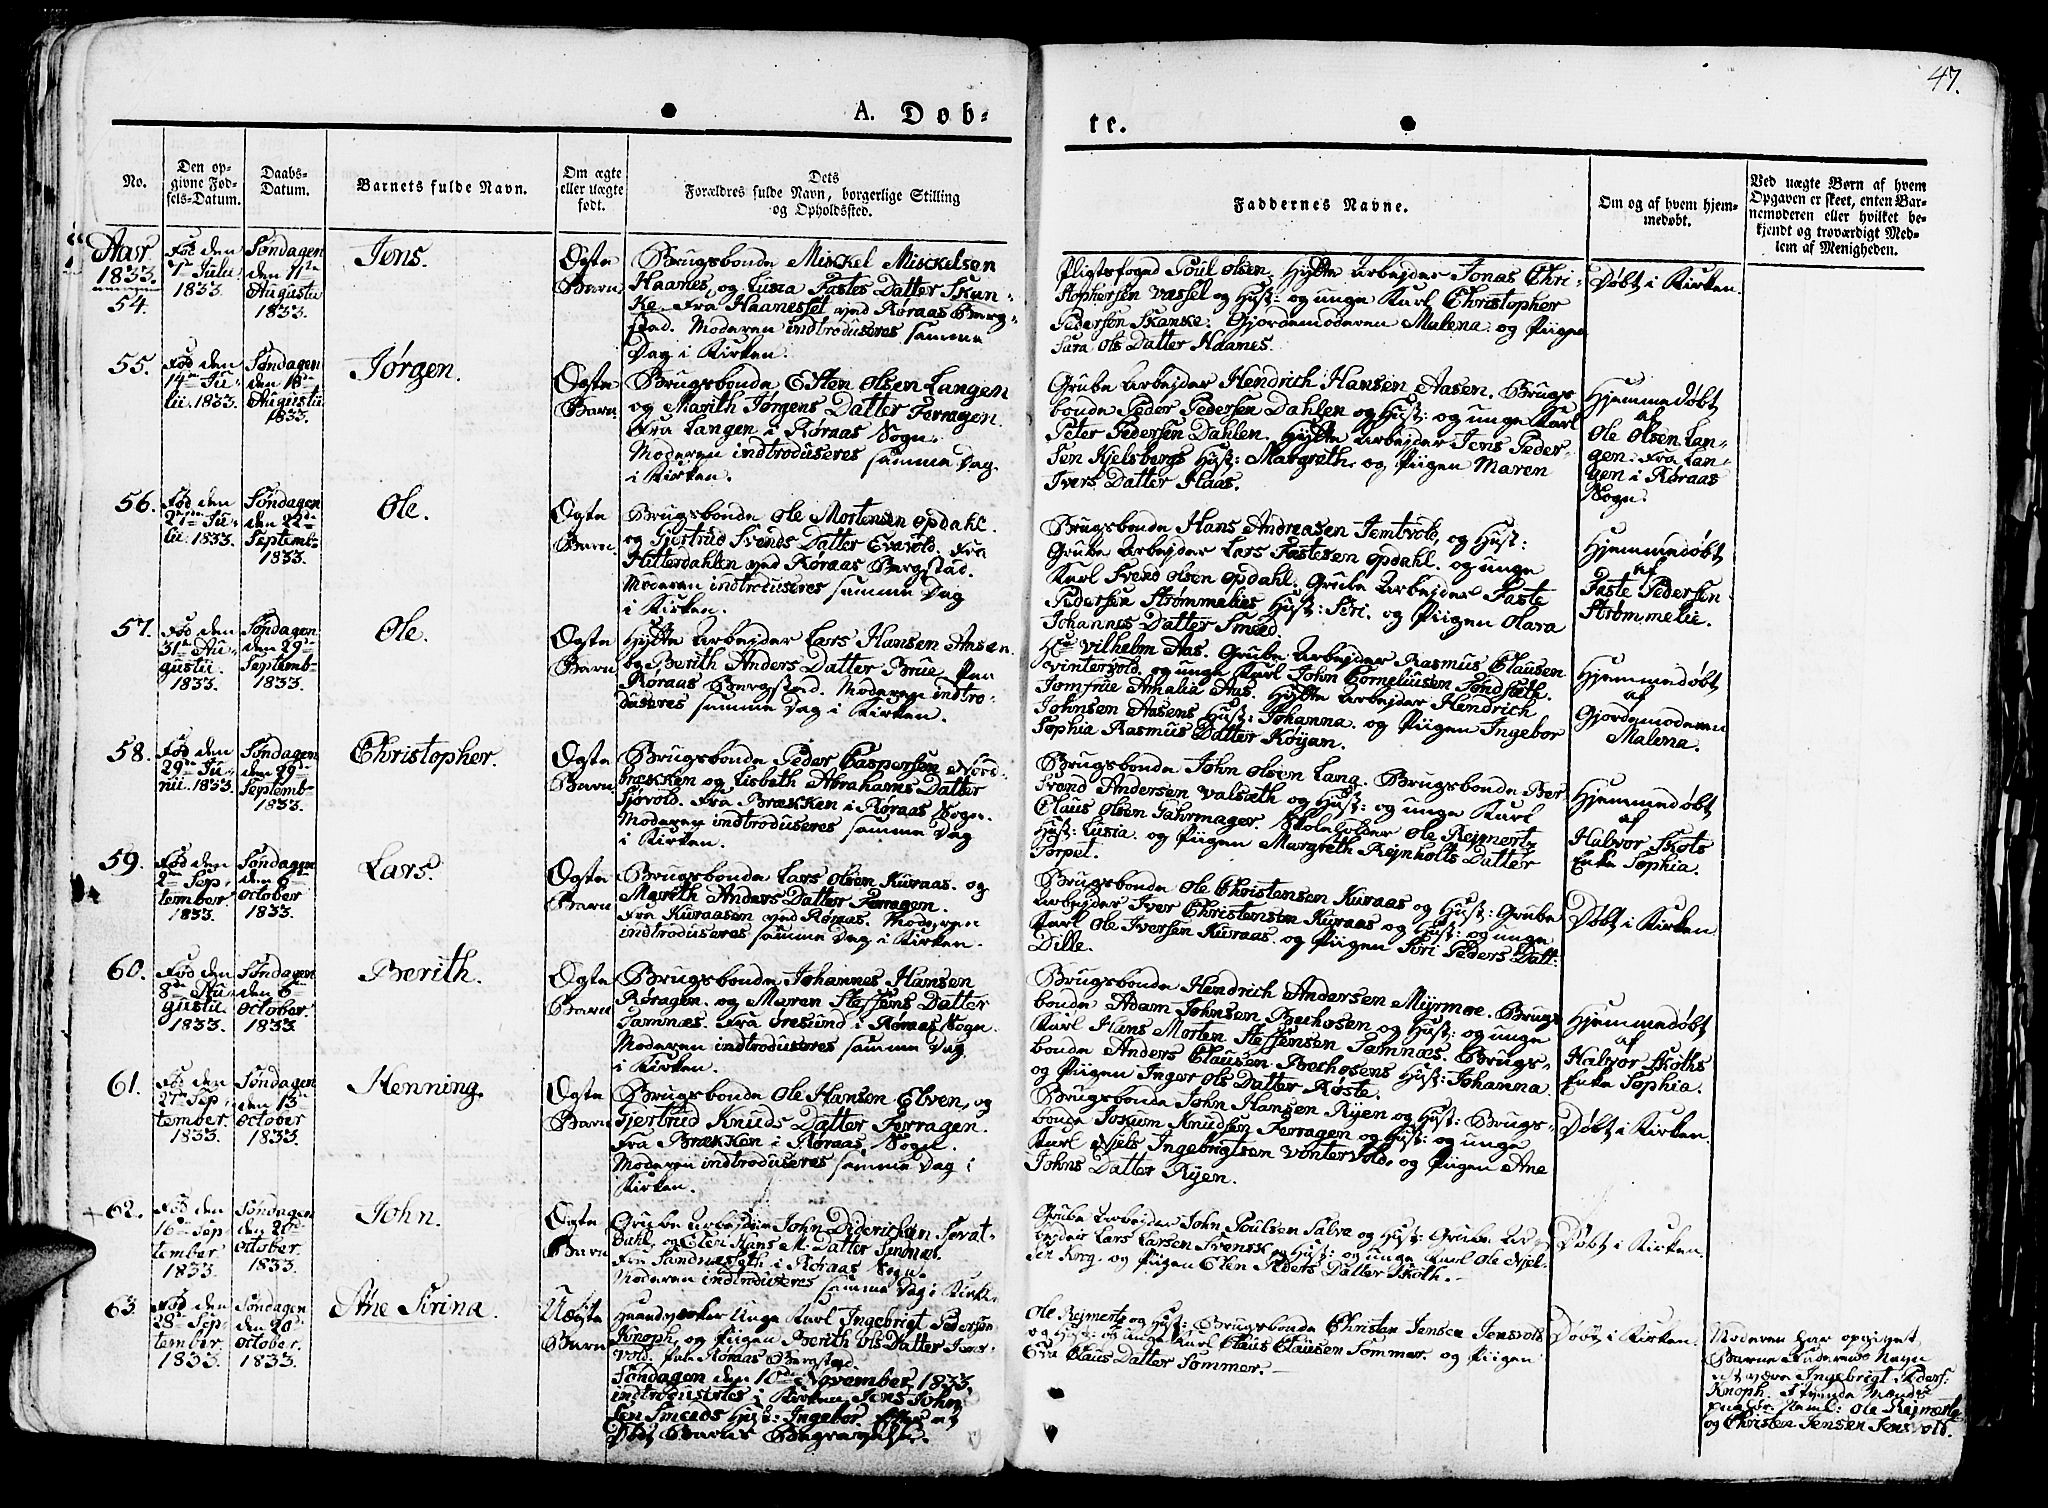 47.
A. Døb-
te.
No.
Den op-
givne Fød-
sels-Datum.
Daabs-
Datum.
Barnets fulde Navn.
Om ægte
eller uægte
født.
Dets
Forældres fulde Navn, borgerlige Stilling
og Opholdssted.
Faddernes Navne.
Om og af hvem hjem-
medøbt.
Ved uægte Børn af hvem
Opgaven er skeet, enten Bar-
nemoderen eller hvilket be-
kjendt og troværdigt Med-
lem af Menigheden.
Aar
1833.
54.
Fød den
7de Julii
1833.
Søndagen
den 11te
Augustii
1833.
Jens.
Ægte
Barn
Brugsbonde Mikkel Mikkelsen
Haanes, og Lusia Fastes Datter Skun-
ke. Fra Haanesset ved Røraas Berg-
stad. Moderen indtroduseres samme
Dag i Kirken.
Pligtsfoged Poul Olsen. Hytte Arbejder Jonas Chri-
stophersen Vassel og Hust: og unge Karl Christopher
Pedersen Skanke. Gjordemoderen Malena. og Piigen
Sara Ols Datter Haanes.
Døbt i Kirken.
55.
Fød den
14de Ju-
lii. 1833.
Søndagen
den 18de
Augustii
1833.
Jørgen.
Ægte
Barn
Brugsbonde Esten Olsen Langen
og Marith Jørgens Datter Ferragen.
Fra Langen i Røraas Sogn.
Moderen indtroduseres samme Dag
i Kirken.
Grube Arbejder Hendrich Hansen Aasen. Brugs
bonde Peder Pedersen Dahlen og Hust: og unge Karl
Peter Pedersen Dahlen. Hytte Arbejder Jens Peder-
sen Kjelsbergs Hust: Margreth. og Piigen Maren
Ivers Datter Haas.
Hjemmedøbt
af
Ole Olsen Lan-
gen. Fra Lan-
gen i Røraas
Sogn.
56.
Fød den
27de Ju-
lii. 1833.
Søndagen
den 22de
Septemb-
1833.
Ole.
Ægte
Barn
Brugsbonde Ole Mortensen Opdahl.
og Gjertrud Svends Datter Evavold. Fra
Hitterdahlen ved Røraas Bergstad.
Moderen indtroduseres samme Dag
i Kirken.
Brugsbonde Hans Andreasen Jemtvold, og Hust:
Grube Arbejder Lars Fastesen Opdahl. og unge
Karl Svend Olsen Opdahl. Grube Arbejder Faste
Pedersen Strømmelies Hust: Siri. og Piigen Olava
Johannes Datter Smed.
Hjemmedøbt
af
Faste Pedersen
Strømmelie.
57.
Fød den
31te Au-
gustii.
1833.
Søndagen
den 29de
Septemb-
1833.
Ole.
Ægte
Barn
Hytte Arbejder Lars Hansen Aasen.
og Berith Anders Datter Brue Paa
Røraas Bergstad. Moderen indtro-
duseres samme Dag i Kirken.
Hr Vilhelm Aas. Grube Arbejder Rasmus Clausen
Vintervold. og unge Karl John Corneliusen Sundsæth.
Jomfrue Amalia Aas. Hytte Arbejder Hendrich
Johnsen Aasens Hust: Johanna. og Piigen Ingebor
Sophia Rasmus Datter Køjan.
Hjemmedøbt
af
Gjordemoderen
Malena.
58.
Fød den
29de Ju-
nii. 1833.
Søndagen
den 29de
Septemb-
1833.
Christopher.
Ægte
Barn
Brugsbonde Peder Caspersen Nord-
brækken og Lisbeth Abrahams Datter
Sjøvold. Fra Brækken i Røraas Sogn.
Moderen indtroduseres samme Dag
i Kirken.
Brugsbonde John Olsen Lang. Brugsbonde Ber
Svend Andersen Valsæth og Hust: og unge Karl
Claus Olsen Fahrmager. Skoleholder Ole Rejmertz
Hust: Lusia. og Piigen Margreth Rejnholts Datter
Torpet.
Hjemmedøbt
af
Halvor Skots
Enke Sophia.
59.
Fød den
2den Sep-
tember
1833.
Søndagen
den 6te
October
1833.
Lars.
Ægte
Barn
Brugsbonde Lars Olsen Kuraas. og
Marith Anders Datter Ferragen.
Fra Kuraasen ved Røraas. Moderen
indtroduseres samme Dag i Kirken.
Brugsbonde Ole Christensen Kuraas og Hust: Grube
Arbejder Iver Christensen Kuraas og Hust: og unge
Karl Ole Iversen Kuraas. og Piigen Siri Peders Datt:
Dille.
Døbt i Kirken
60.
Fød den
8de Au-
gustii
1833.
Søndagen
den 6te
October.
1833
Berith.
Ægte
Barn
Brugsbonde Johannes Hansen
Røragen. og Maren Steffens Datter
Tamnæs. Fra Øresund i Røraas Sogn.
Moderen indtroduseres samme Dag
i Kirken.
Brugsbonde Hendrich Andersen Myrmoe. Brugs
bonde Adam Johnsen Bechosen og Hust: og unge
Karl Hans Morten Steffensen Tamnæs. Brugs-
bonde Anders Clausen Bechosens Hust: Johanna
og Piigen Inger Ols Datter Røste.
Hjemmedøbt
af
Halvor Skoths
Enke Sophia.
61.
Fød den
27de Sep-
tember.
1833.
Søndagen
den 13de
October
1833.
Henning.
Ægte
Barn
Brugsbonde Ole Hansen Elven, og
Gjertrud Knuds Datter Ferragen.
Fra Brækken i Røraas Sogn.
Moderen indtroduseres samme Dag i
Kirken.
Brugsbonde John Hansen Ryen og Hust: Brugs-
bonde Jokum Knudsen Ferragen og Hust: og unge
Karl Niels Ingebrigtsen Vintervold, og Piigen Ane
Johns Datter Ryen.
Døbt i Kirken.
62.
Fød den
16de Sep-
tember
1833.
Søndagen
den 20de
October.
1833.
John.
Ægte
Barn
Grube Arbejder John Dideriksen
Dahl, og Eleri Hans M: Datter
Moderen indtroduseres samme Dag i Kirke.
Grube Arbejder John Poulsen Salve og Hust: Grube Ar-
bejder Lars Larsen Svensk og Hust: og unge Karl Ole Njel-
sen Korg. og Piigen Elen Peders Datter Skoth.
Døbt i Kirken.
63.
Fød den
28de Sep-
tember
1833.
Søndagen
den 20de
October.
1833.
Ane Sirina.
Uægte
Barn
Unge Karl Ingebrigt Pedersen
Knoph, og Piigen Berith Ols Datter Jens-
vold. Fra Røraas Bergstad.
Søndagen den 10de November 1833.
indtroduseres i Kirken Jens John-
sen Smeds Hust: Ingebor,
Ole Rejmertz og Hust: Brugsbonde Christen Jensen Jensvold
og Hust: og unge Karl Claus Clausen Sommer. og Piigen
Eva Claus Datter Sommer.
Døbt i Kirken.
Moderen har opgivet
Barne Faderens Navn
at være Ingebrigt Peders:
Knoph.
Ole Rejmertz
og Christen Jensen Jensvold.